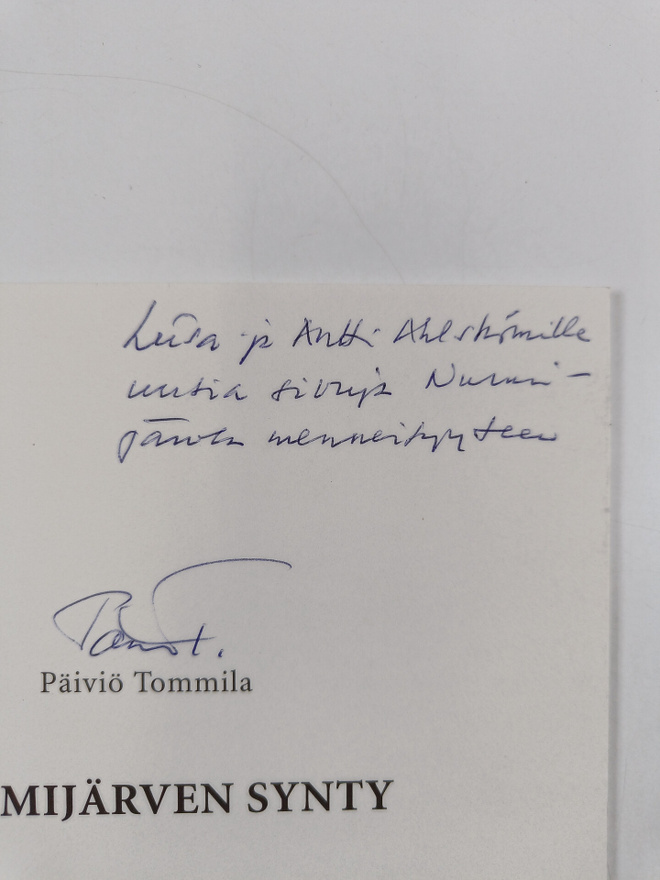 Leila ja Antti Ahlströmille
uusia sivuja Nurmi-
järven menneisyyteen
Päiviö T.
Päiviö Tommila
MIJÄRVEN SYNTY